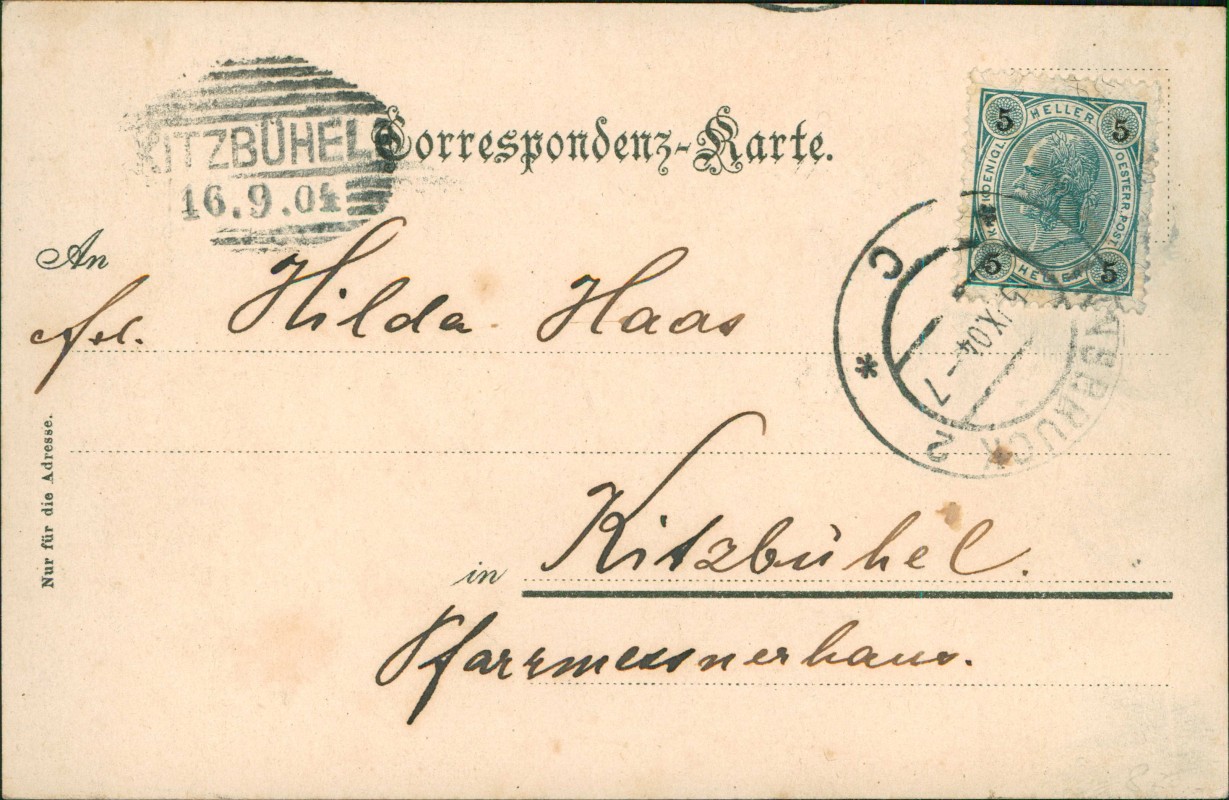 KITZBÜHEL
16.9.04
Correspondenz-Karte.
5 HELLER 5
KAIS. KOENIGL. OESTERR. POST
5 HELLER 5
An
Frl. Hilda Haas
C * INNSBRUCK 2
IX 04 - 7
Nur für die Adresse.
in Kitzbühel.
Pfarrmessnerhaus.